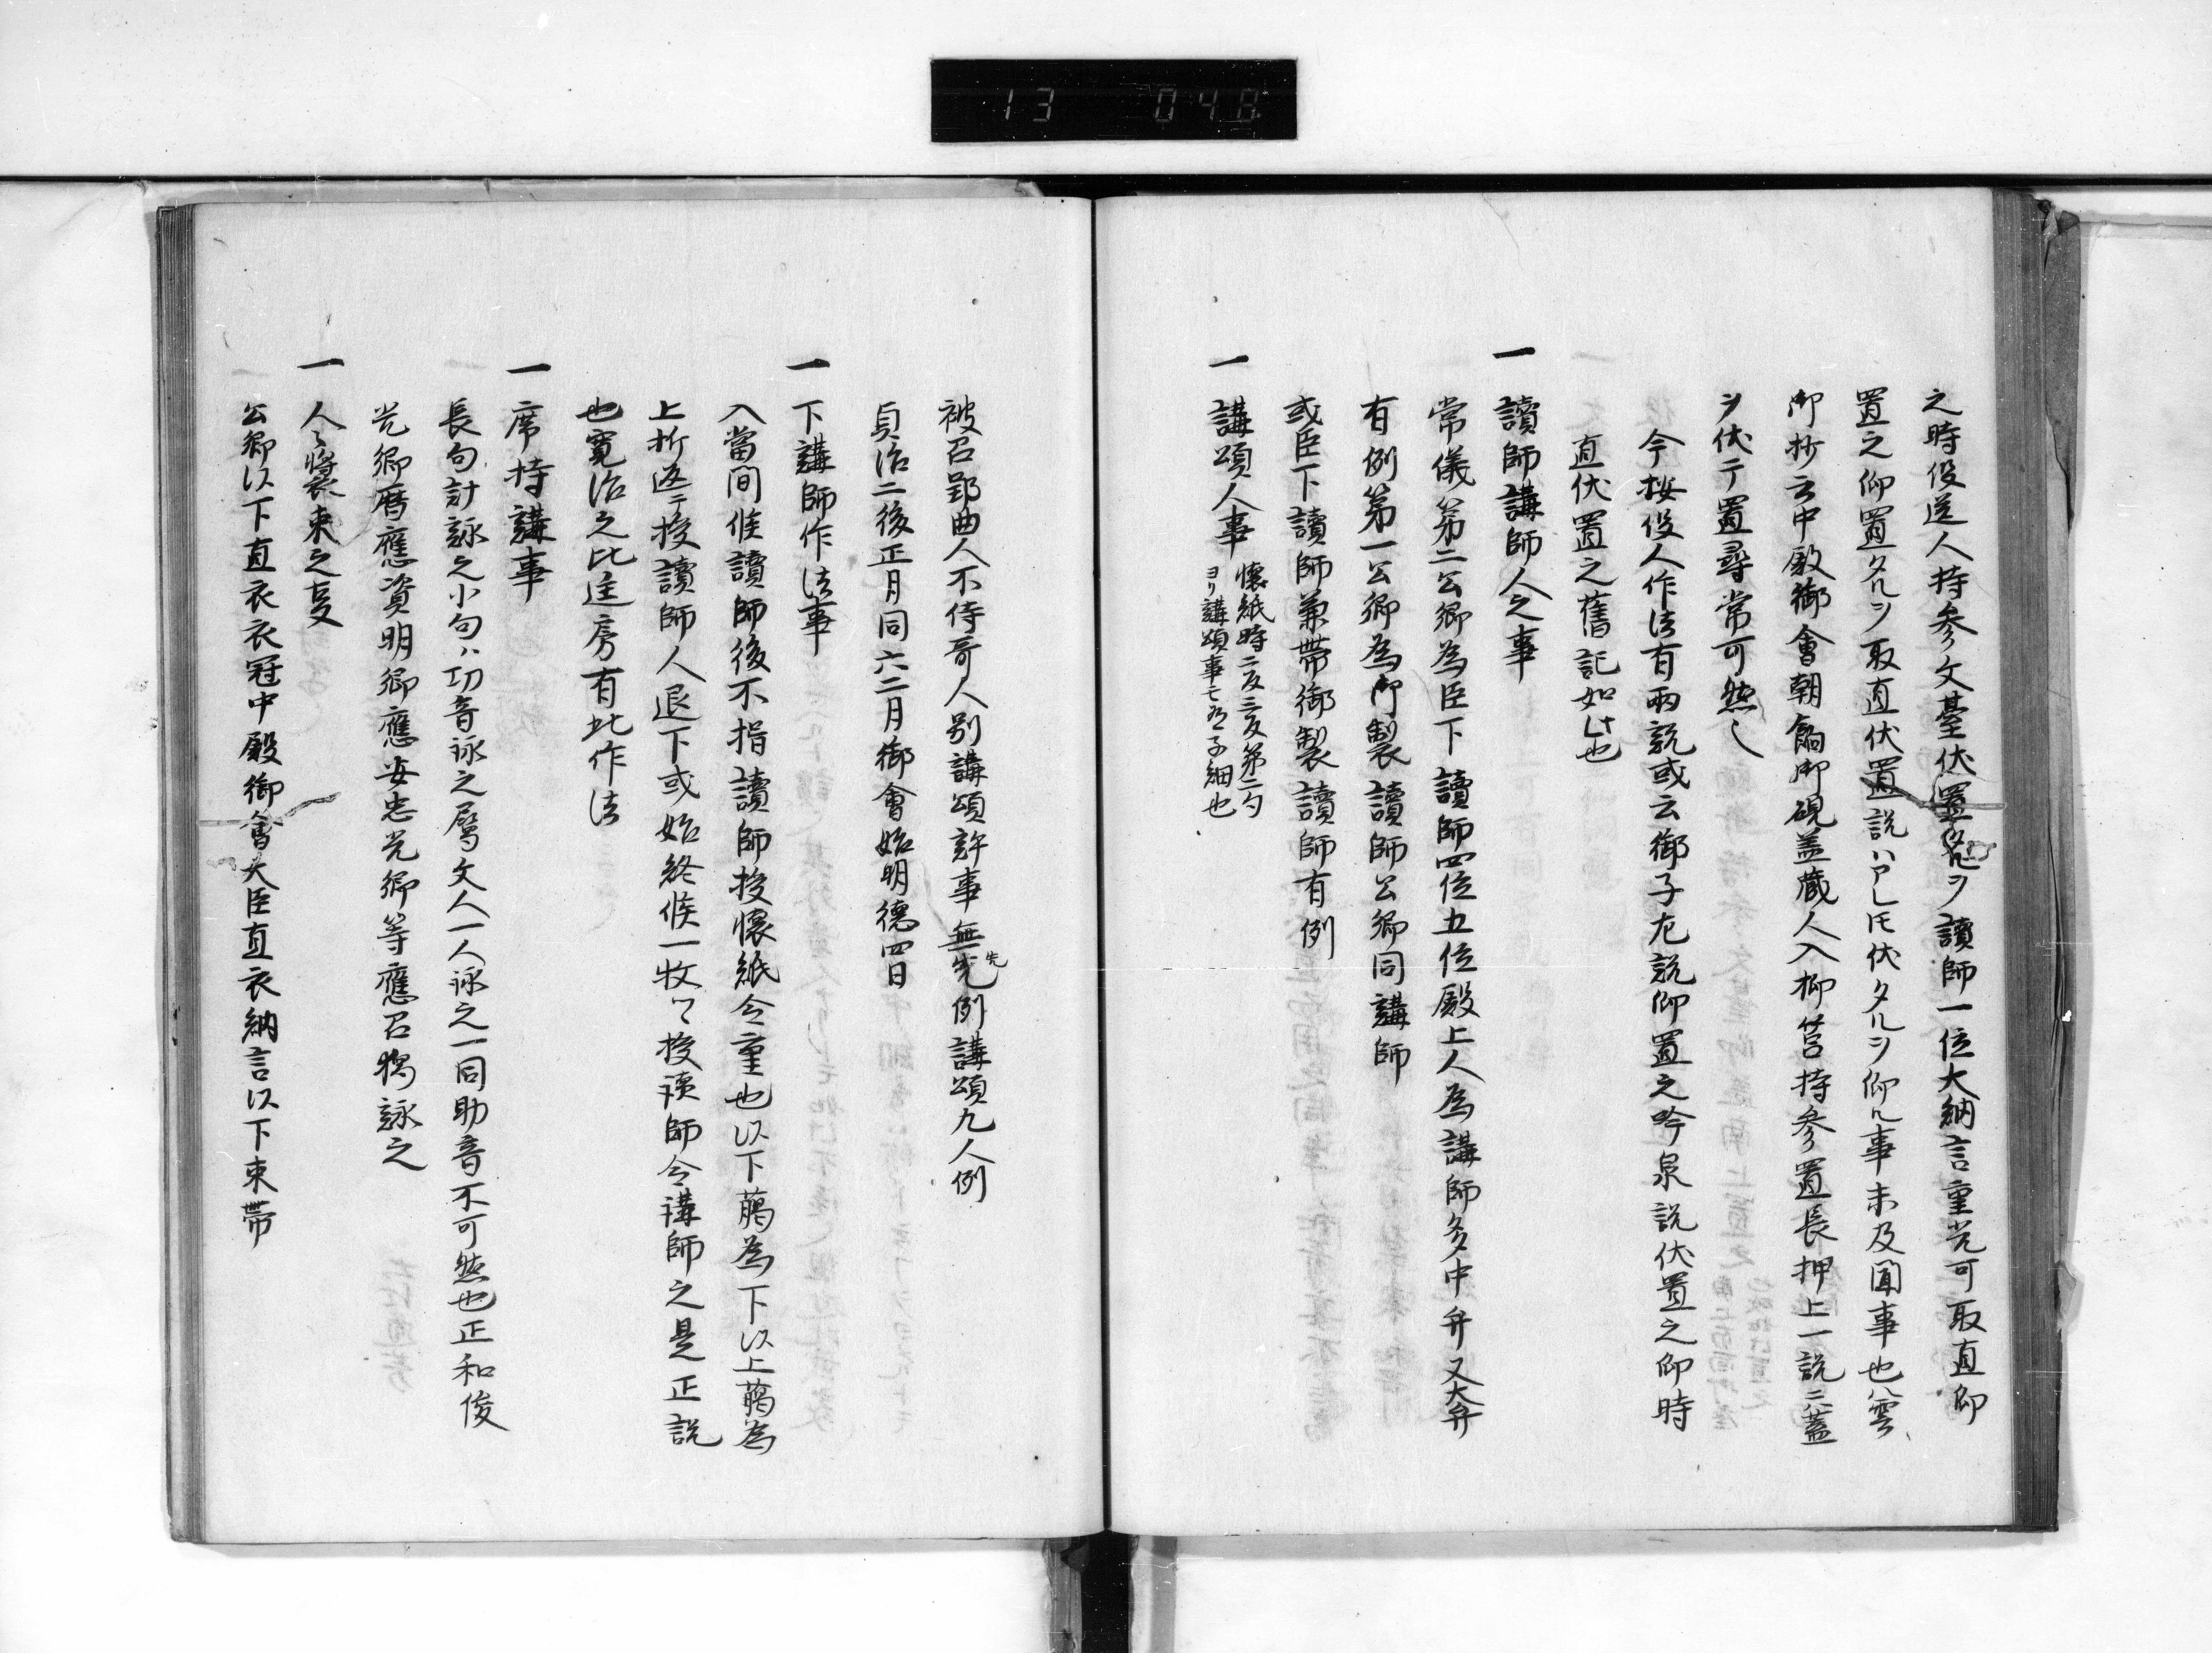 13 048
之時役送人持参文臺伏置タルヲ讀師一位大納言重光可取直仰
置之仰置タルヲ取直伏置説ハアレ圧伏タルヲ仰ル事未及聞事也八雲
御抄云中殿御會朝餉御硯盖蔵人入柳筥持参置長押上一説ニハ蓋
ヲ伏テ置尋常可然〻
今按役人作法有両説或云御子左説仰置之吟泉説伏置之仰時
直伏置之舊記如此也
一 讀師講師人之事
常儀第二公卿為臣下讀師四位五位殿上人為講師多中弁又大弁
有例第一公卿為御製讀師公卿同講師
或臣下讀師兼帯御製讀師有例
一 講頌人事 懐紙時二反三反第二句
ヨリ講頌事モ有子細也
被召郢曲人不侍哥人別講頌許事無先例講頌九人例
先
貞治二後正月同六二月御會始明徳四日
一 下講師作法事
入當間候讀師後不指讀師授懐紙令重也以下﨟為下以上﨟為
上折返テ授讀師人退下或始終候一枚〻授讀師令講師之是正説
也寛治之比匡房有此作法
一 席持講事
長句計詠之小句ハ切音詠之属文人一人詠之一同助音不可然也正和俊
光卿暦應資明卿應安忠光卿等應召獨詠之
一 人〻裝束之事
公卿以下直衣衣冠中殿御會大臣直衣納言以下束帯